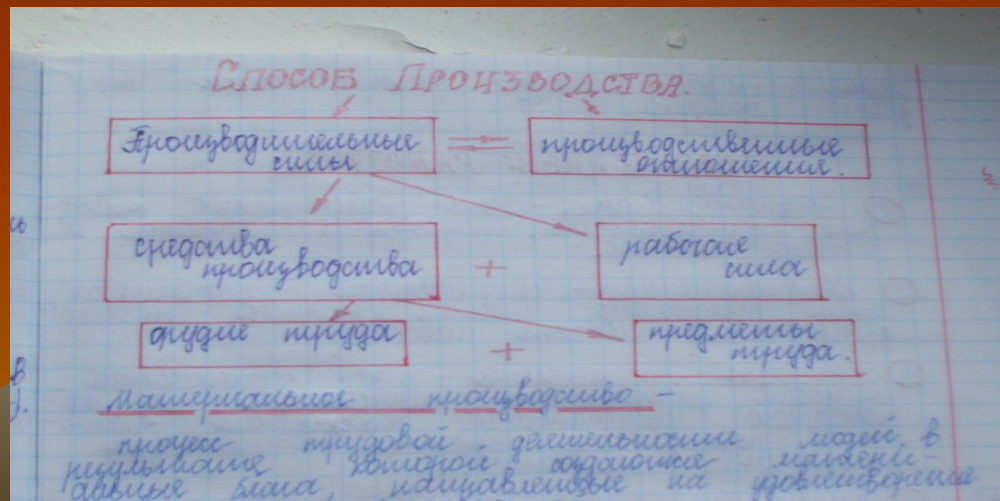 СПОСОБ ПРОИЗВОДСТВА.
Производительные
силы
производственные
отношения.
средства
производства
+
рабочая
сила
орудие труда
+
предметы
труда.
Материальное производство -
процесс трудовой деятельности людей, в
результате которой создаются матери-
альные блага, направленные на удовлетворение